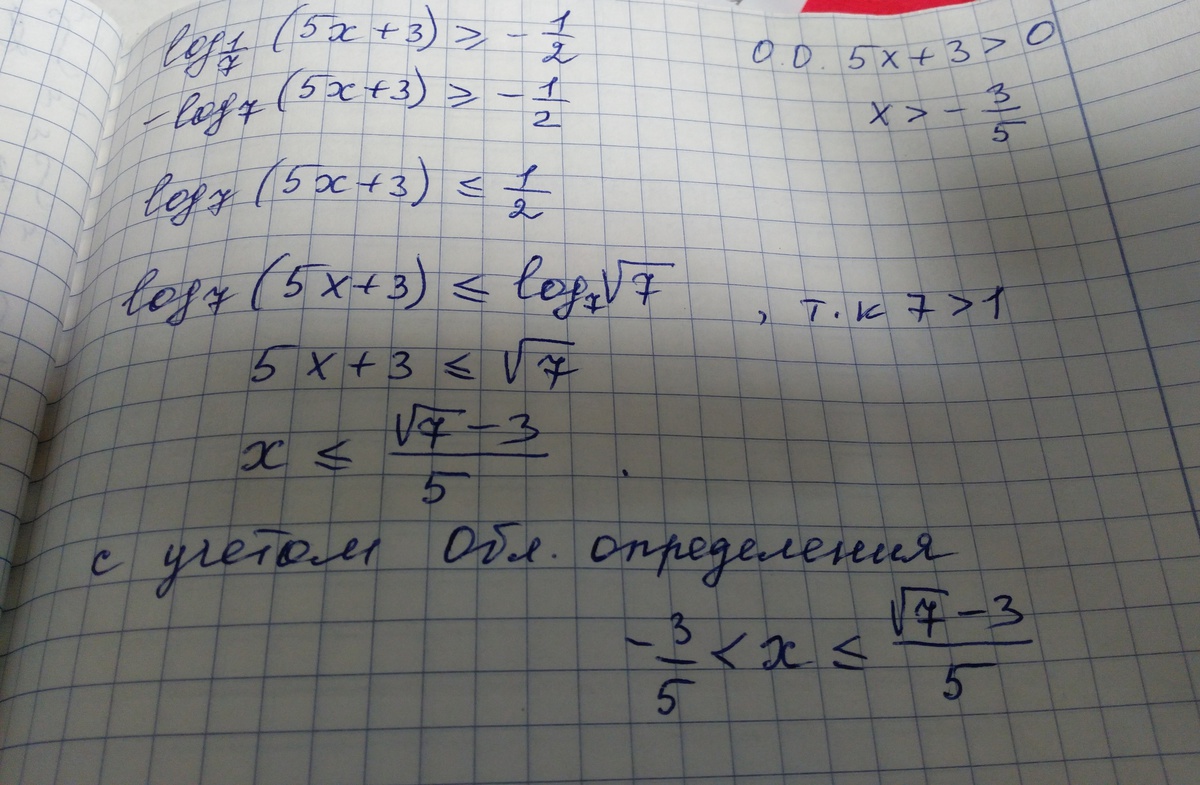 log_{1/7} (5x+3) ≥ -1/2
О.О. 5x+3>0
-log_7 (5x+3) ≥ -1/2
x > -3/5
log_7 (5x+3) ≤ 1/2
log_7 (5x+3) ≤ log_7 √7 , т.к 7>1
5x+3 ≤ √7
x ≤ (√7-3)/5 .
с учетом Обл. определения
-3/5 < x ≤ (√7-3)/5